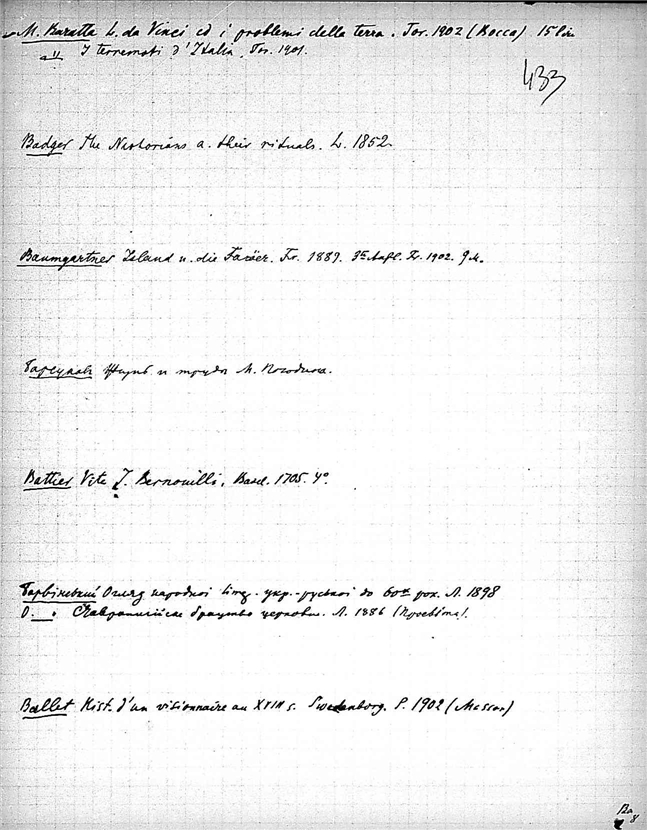 M. Baratta L. da Vinci ed i problemi della terra. Tor. 1902 (Bocca) 15 lire
_"_ I terremoti d'Italia, Tor. 1901.
433
Badger The Nestorians a. their rituals. L. 1852.
Baumgartner Island u. die Faröer. Fr. 1889. 3te Aufl. Fr. 1902. 9 M.
Барсуковъ Жизнь и труды М. Погодина.
Battier Vita J. Bernouilli, Basel. 1705. 4°.
Барвінський Огляд народної літ. укр.-руської до 60их рок. Л. 1898
О. Ставропигійске брацтво церковне. Л. 1886 (Просвіта).
Ballet Hist. d'un visionnaire au XVIII s. Swedenborg. P. 1902 (Masson)
Ba
8